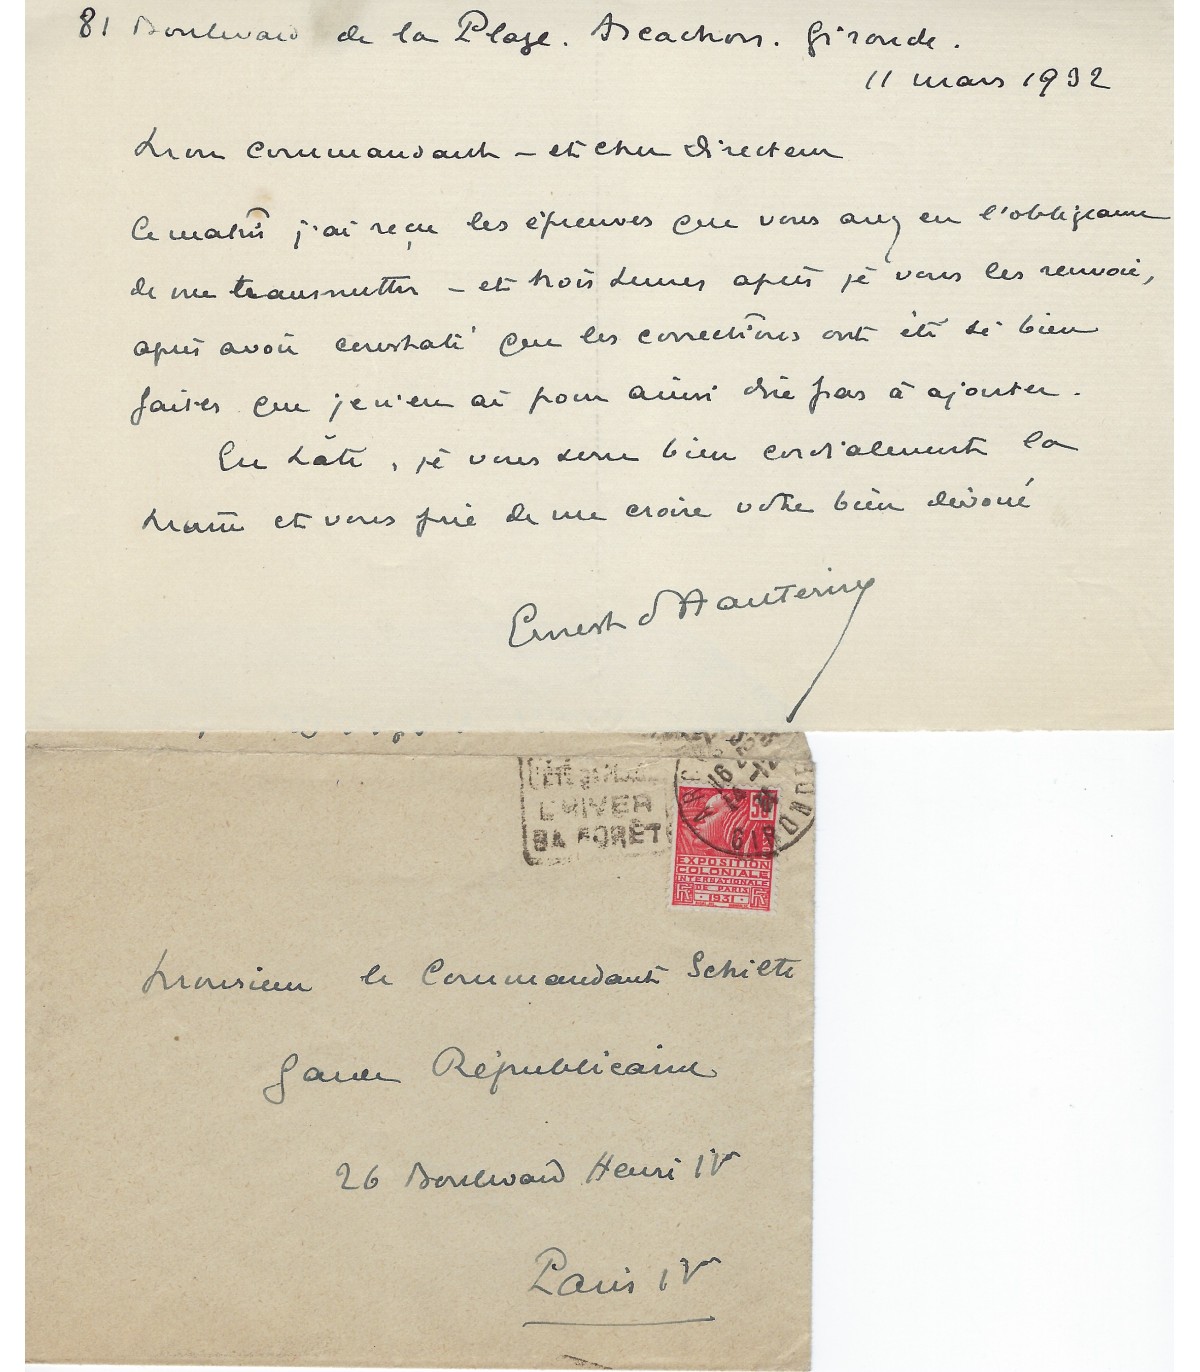 81 Boulevard de la Plage. Arcachon. Gironde.
11 mars 1932
Mon commandant – et cher Directeur
Ce matin j'ai reçu les épreuves que vous avez eu l'obligeance
de me transmettre – et trois heures après je vous les renvoie,
après avoir constaté que les corrections ont été si bien
faites que je n'en ai pour ainsi dire pas à ajouter.
En hâte, je vous serre bien cordialement la
main et vous prie de me croire votre bien dévoué
Ernest d'Hauterive
L'HIVER
SA FORÊT
EXPOSITION
COLONIALE
INTERNATIONALE
DE PARIS
1931
Monsieur le Commandant Schilte
Garde Républicaine
26 Boulevard Henri IV
Paris IV